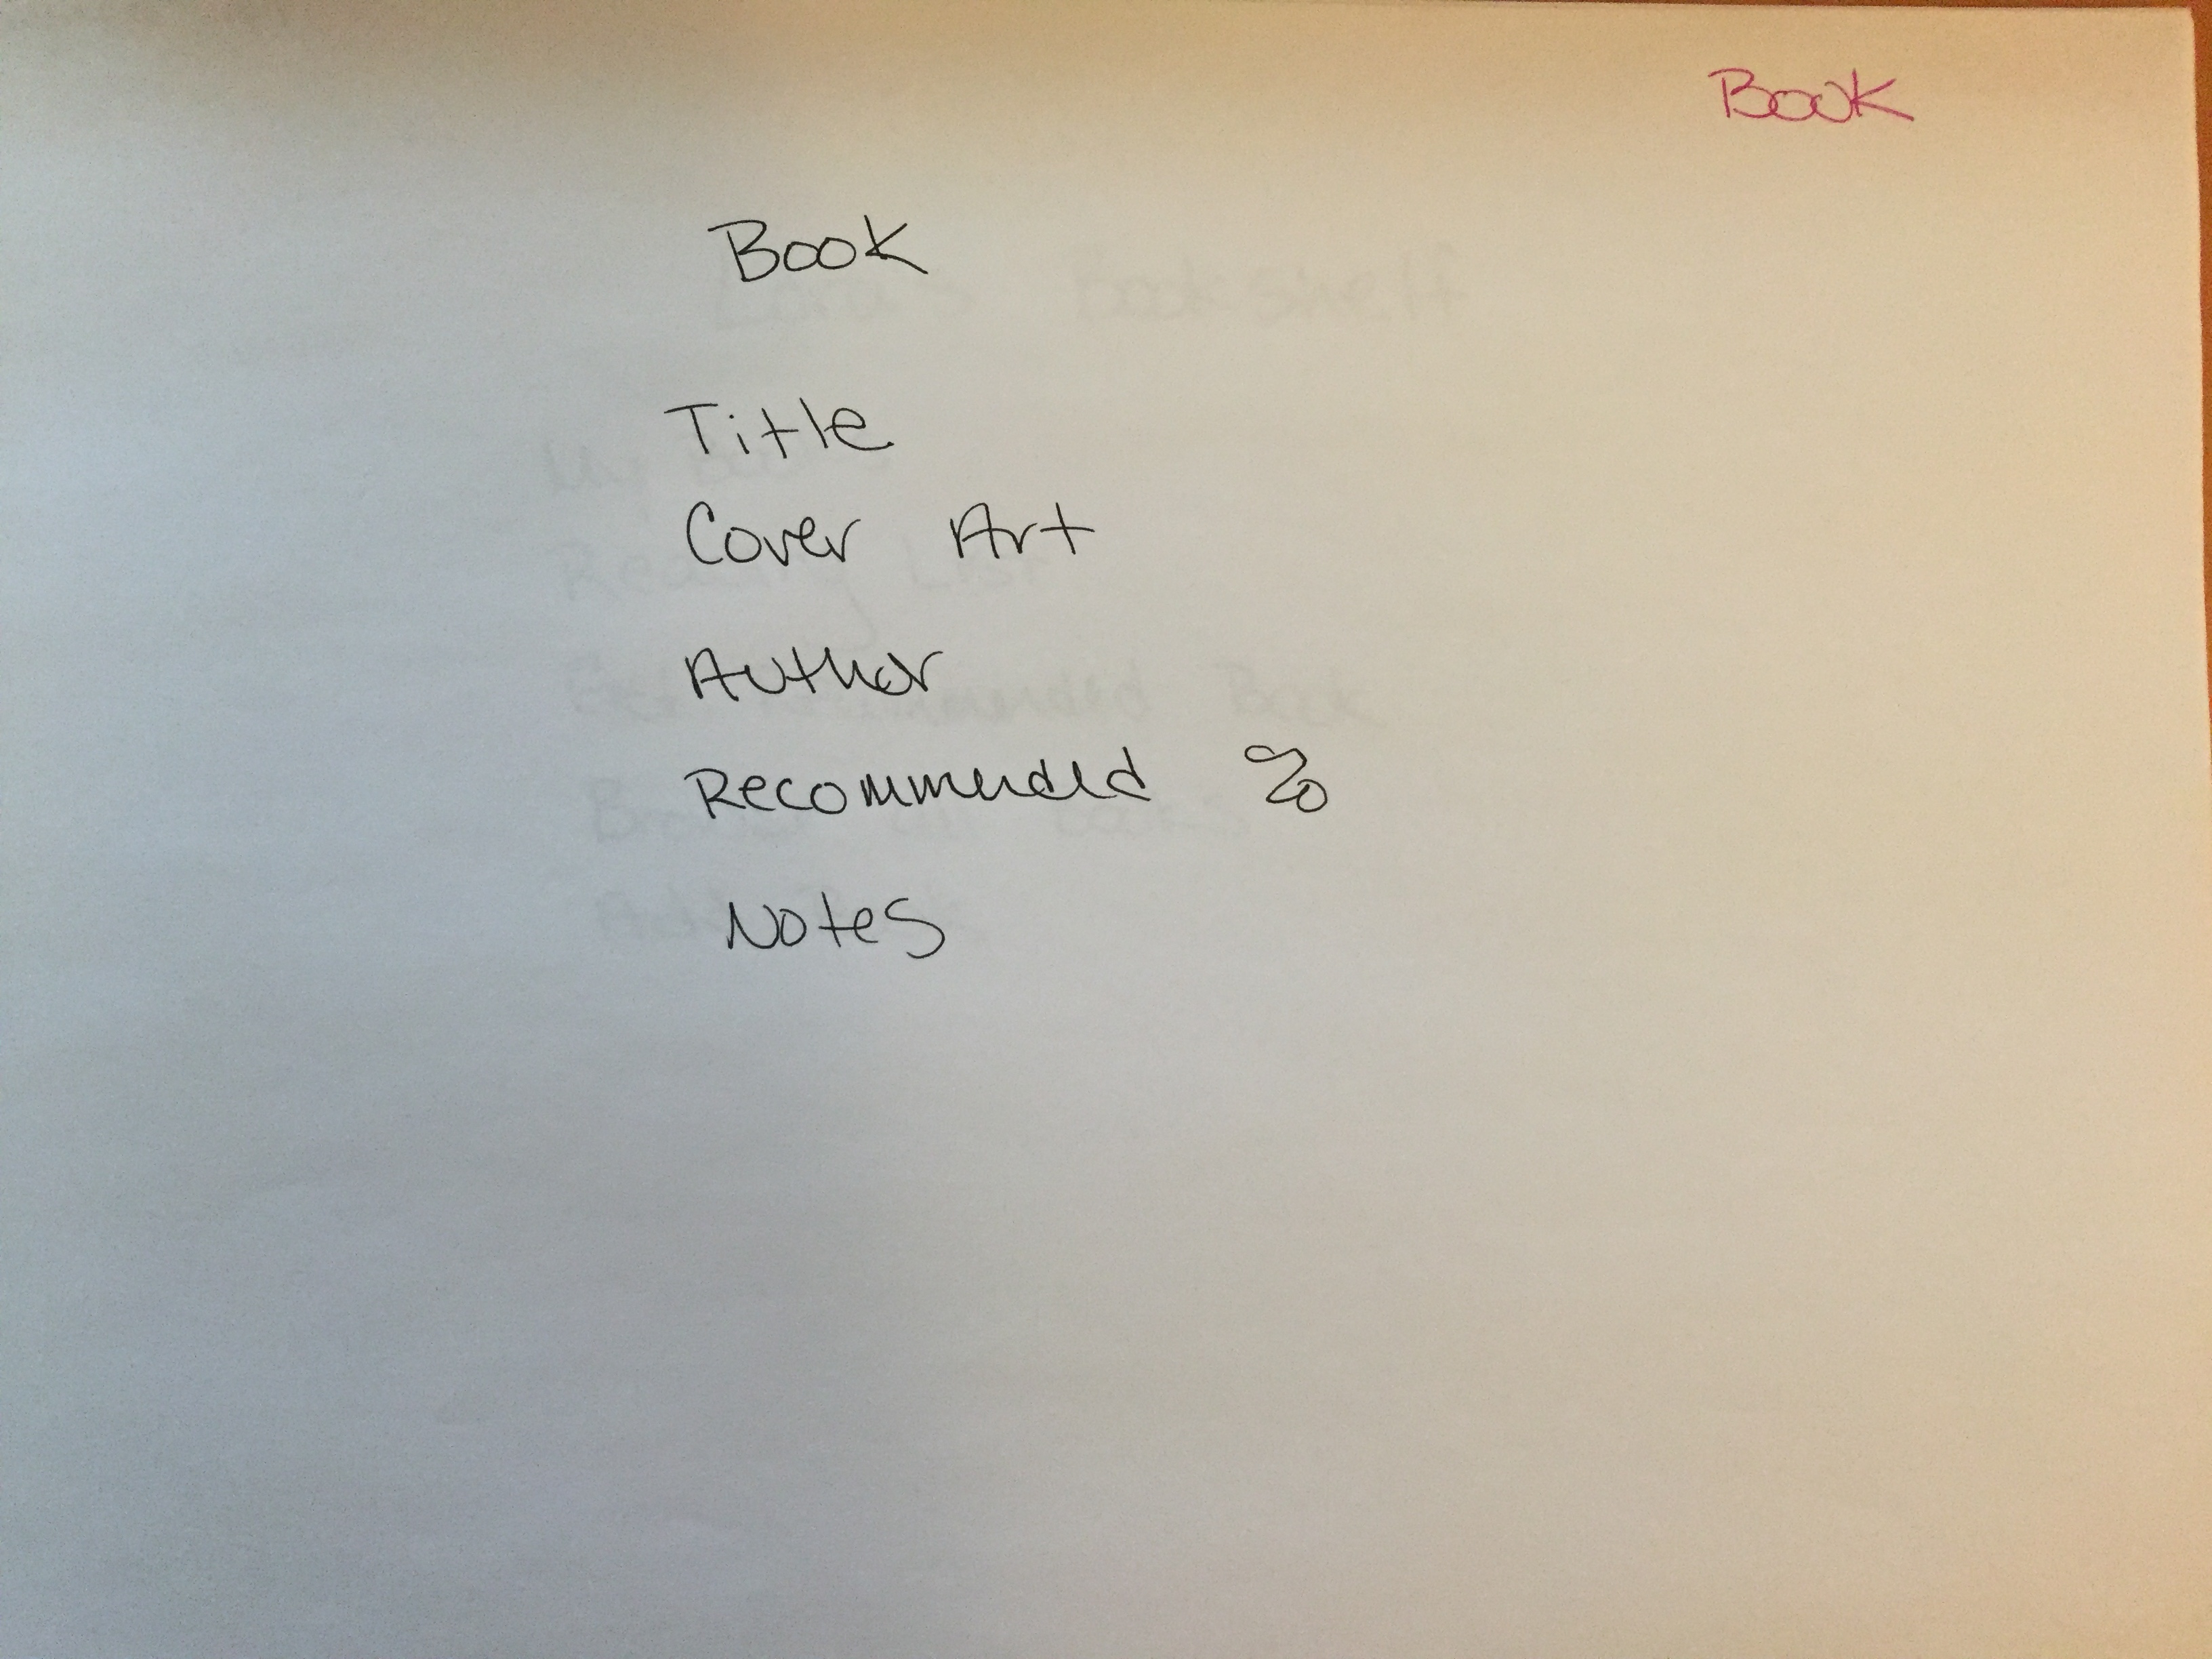 Book
Book
Title
Cover Art
Author
Recommended
Notes